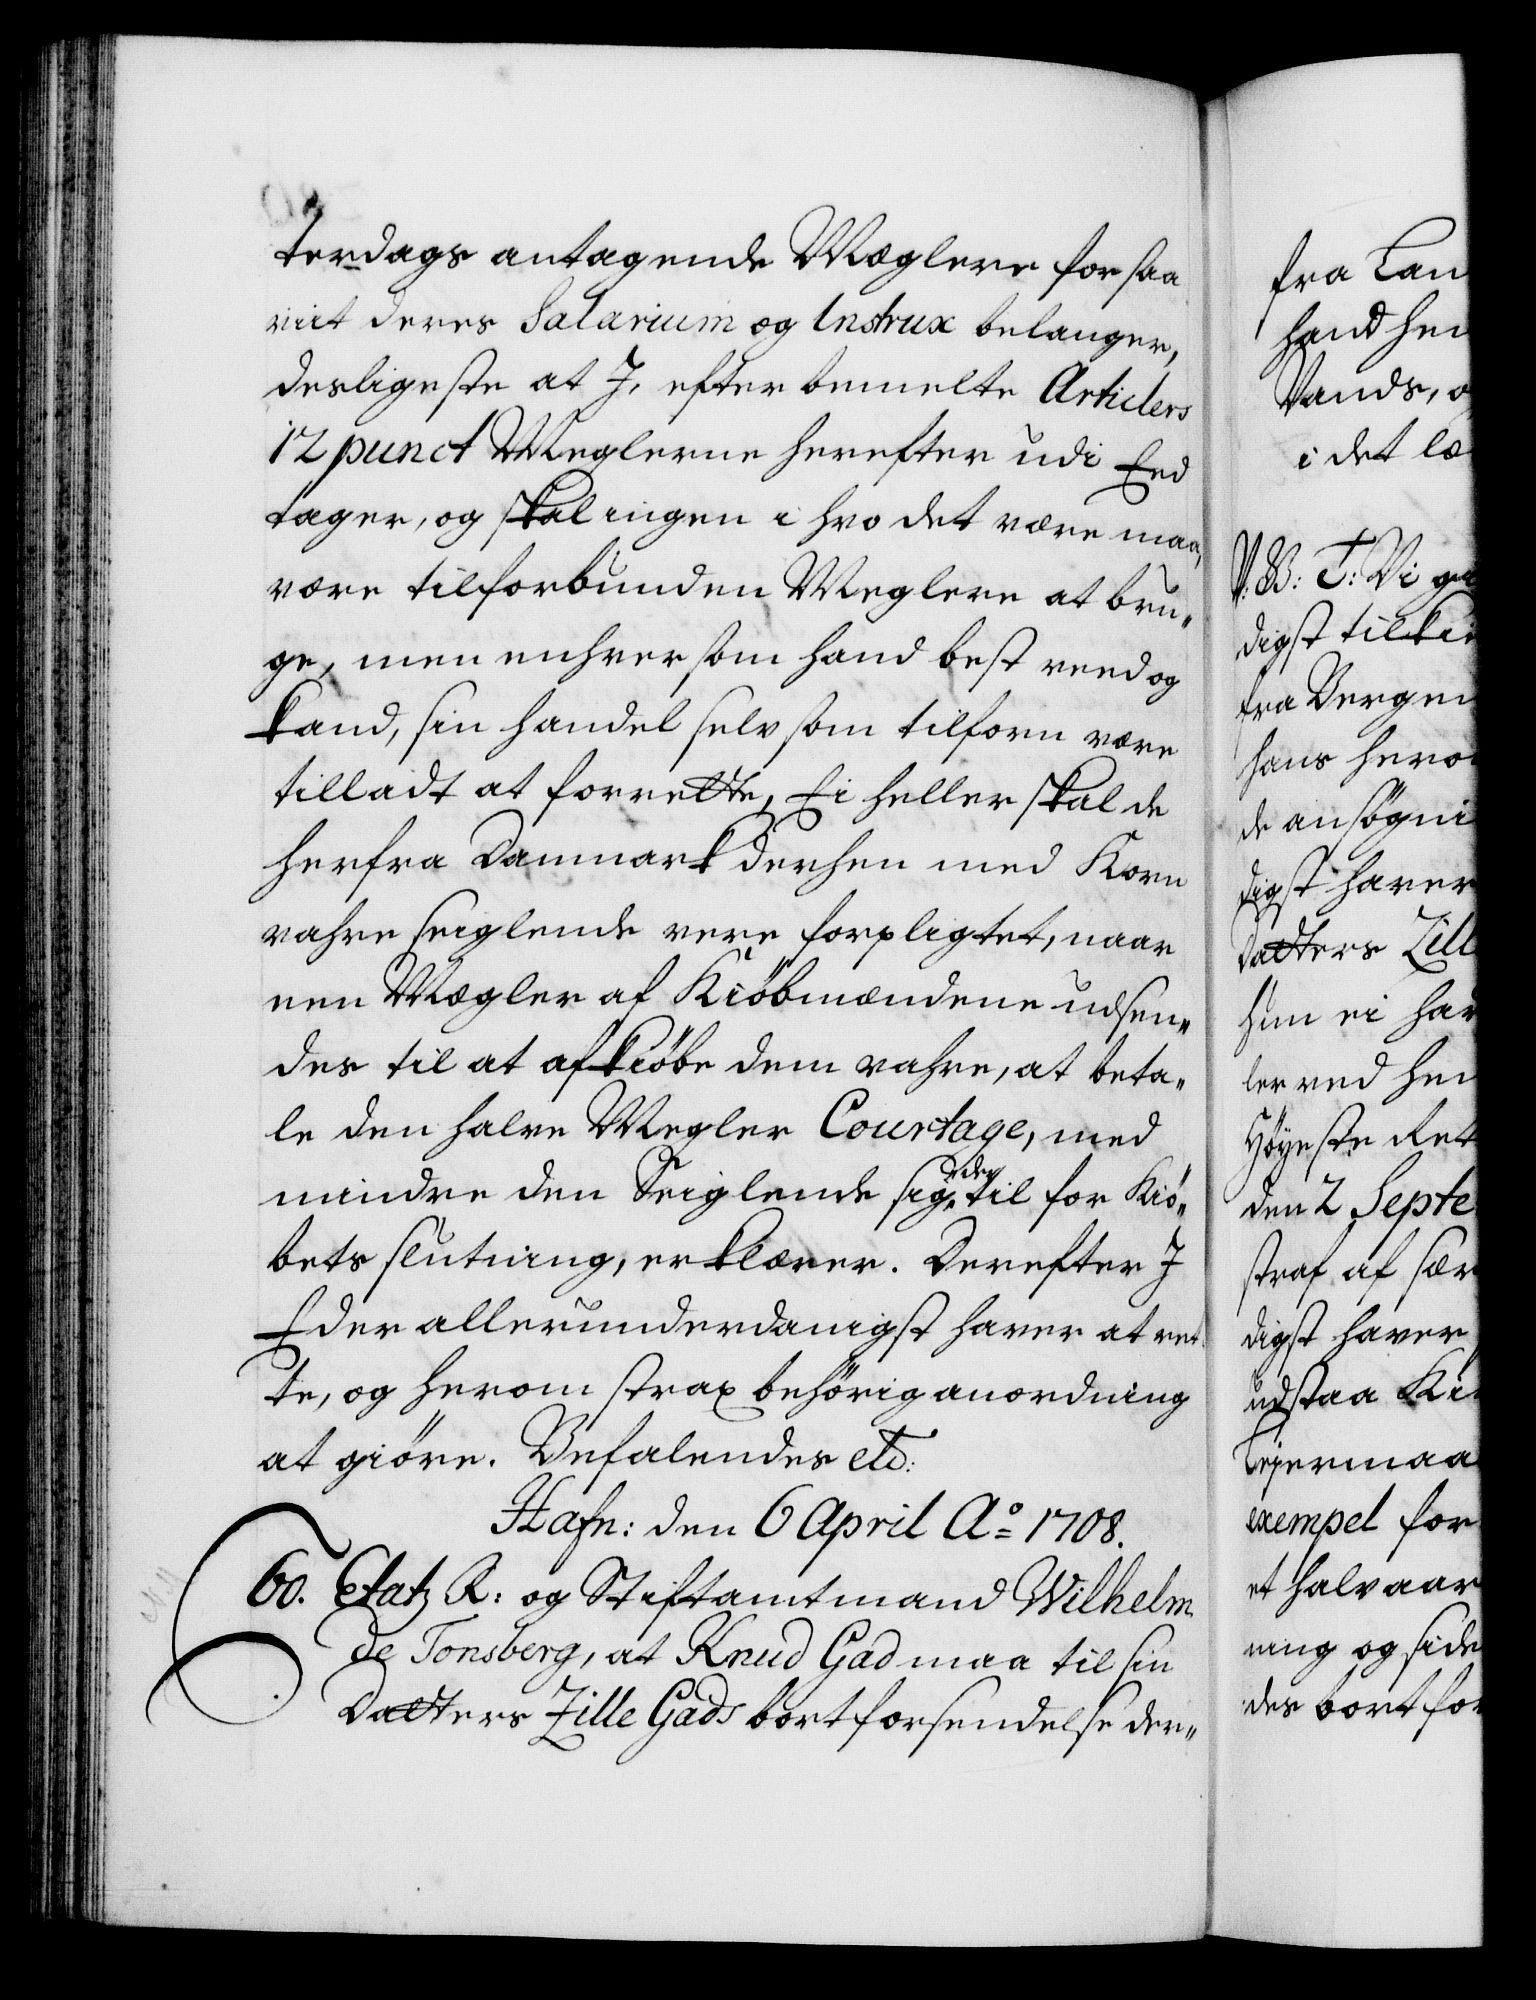 terdags antagende Mæglere for saa
viit deres Salarium og Instrux belanger,
desligeste at J, efter bemelte Articlers
12 punct Meglerne herefter udi Eed
tager, og skal ingen i hvo det være maa,
være tilforbunden Meglere at bru„
ge, men enhver som hand best veed og
kand, sin handel selv som tilforn være
tilladt at forrette, Ei heller skal de
herfra Danmark derhen med Korn
vahre seiglende vere forpligtet, naar
een Mægler af Kiöbmændene udsen„
des til at afkiöbe dem vahre, at beta„
le den halve Megler Courtage, med
mindre den Seiglende sig der til for Kiö„
bets slutning, erklærer. Derefter J
Eder allerunderdanigst haver at ret„
te, og herom strax behörig anordning
at giöre. Befalendes etc:
Hafn: den 6 April Aº 1708.
60. Etatz R: og Stiftamtmand Wilhelm
de Tonsberg, at Knud Gad maa til sin
Datters Zille Gads bortforsendelse der„
fra Lan
hand hen
Vands, o
i det læ
V: G: T: Vi gi
digst tilkie
fra Bergen
hans hero
de ansögni
digst haver
Datters Zill
hun ei har
ler ved hen
Höyeste Ret
den 2 Septe
straf af sær
digst haver
udstaa Ki
Lejermaa
exempel for
et halv aar
ning og side
des bort for